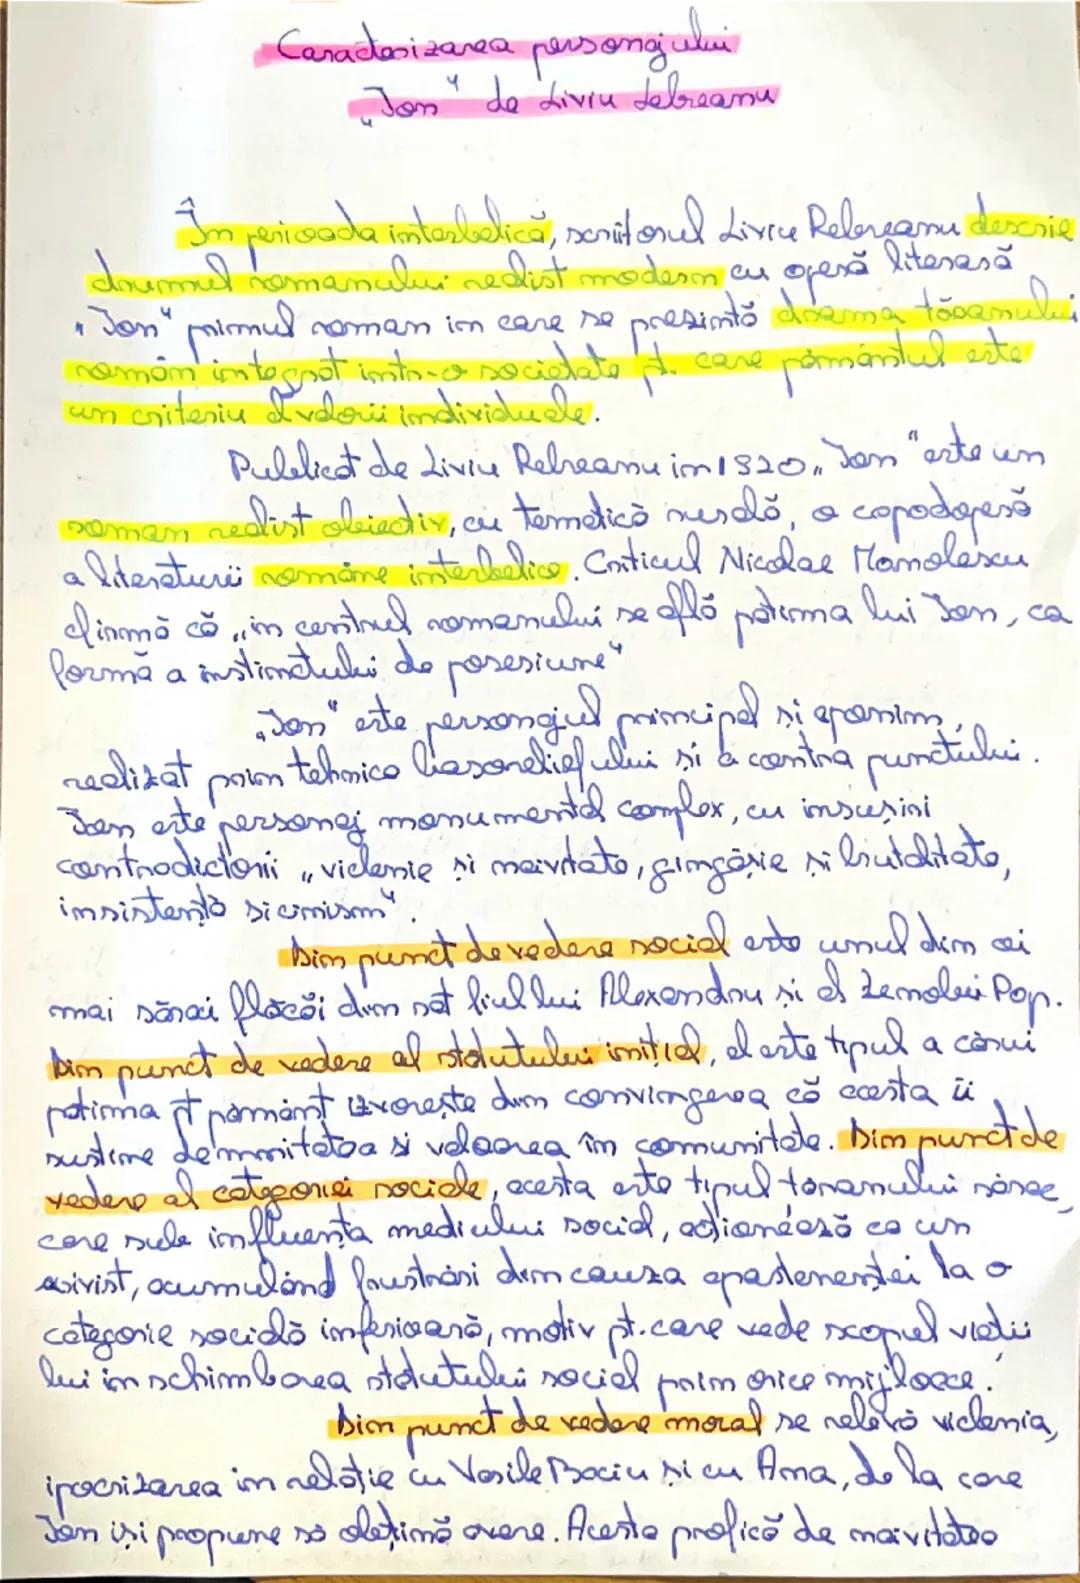 Caracterizarea personajului
„Ion" de Liviu Rebreanu
În perioada interbelică, scriitorul Liviu Rebreanu descrie
drumul romanului realist modern cu operă literară
„Ion" primul roman in care se prezintă drama țăranului
român integrat intr-o societate pt. care pământul este
un criteriu al valorii individuale.
Publicat de Liviu Rebreanu in 1920 „Ion" este un
roman realist obiectiv, cu tematică rurală, o capodoperă
a literaturii române interbelice. Criticul Nicolae Manolescu
afirmă că „in centrul romanului se află patima lui Ion, ca
formă a instinctului de posesiune"
„Ion" este personajul principal si eponim,
realizat prin tehnica basoreliefului si a contra punctului.
Ion este personaj monumental complex, cu insușiri
contradictorii „viclenie si naivitate, gingășie si brutalitate,
insistență si cinism".
Din punct de vedere social este unul din cei
mai săraci flăcăi din sat fiul lui Alexandru si al Zenobiei Pop.
Din punct de vedere al statutului inițial, el este tipul a cărui
patima pt pământ izvorește din convingerea că acesta ii
sustine demnitatea si valoarea în comunitate. Din punct de
vedere al categoriei sociale, acesta este tipul țăranului sărac,
care sub influența mediului social, acționează ca un
arivist, acumulând frustrări din cauza apartenenței la o
categorie socială inferioară, motiv pt. care vede scopul vieții
lui in schimbarea statutului social prin orice mijloace.
Din punct de vedere moral se relevă viclenia,
ipocrizarea in relație cu Vasile Baciu si cu Ana, de la care
Ion isi propune să obțină avere. Acesta profică de naivitatea